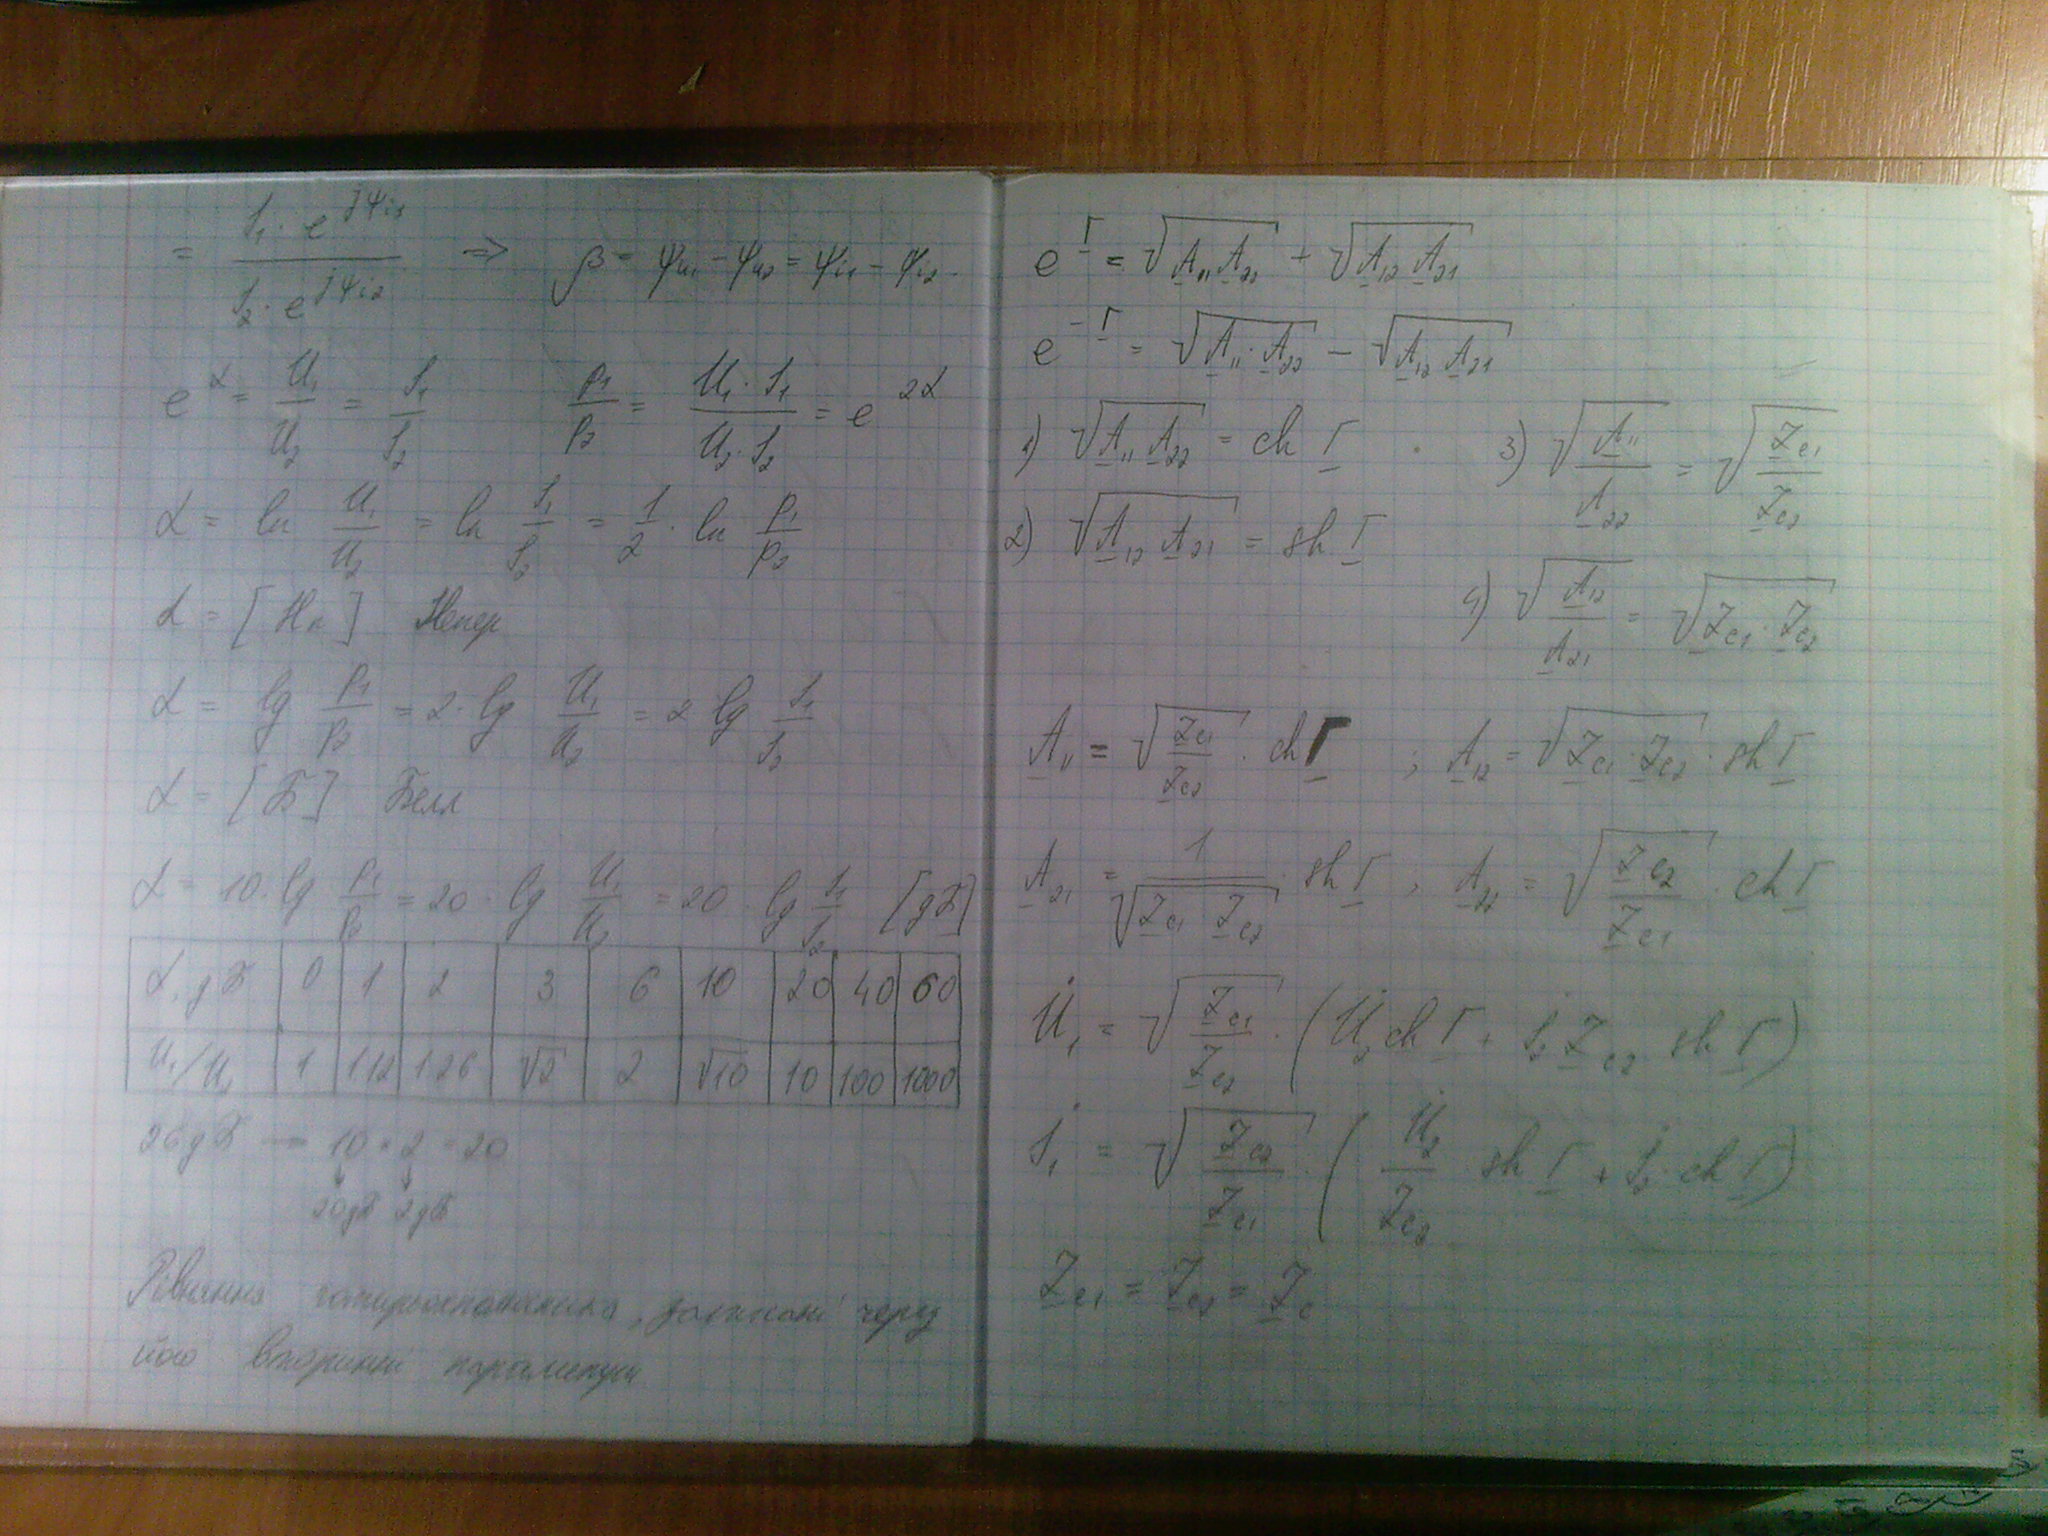 = I₁·e^(jψi1) / I₂·e^(jψi2) ⇒ β = ψu1 − ψu2 = ψi1 − ψi2
e^α = U₁/U₂ = I₁/I₂   P₁/P₂ = U₁·I₁ / U₂·I₂ = e^(2α)
α = ln U₁/U₂ = ln I₁/I₂ = 1/2 · ln P₁/P₂
α = [Нп] Непер
α = lg P₁/P₂ = 2·lg U₁/U₂ = 2 lg I₁/I₂
α = [Б] Белл
α = 10·lg P₁/P₂ = 20·lg U₁/U₂ = 20·lg I₁/I₂ [дБ]
α, дБ 0 1 2 3 6 10 20 40 60
U₁/U₂ 1 1.12 1.26 √2 2 √10 10 100 1000
26дБ — 10 · 2 = 20
20дБ 2дБ
Рівняння чотириполюсника, записані через
його вторинні параметри
e^Γ = √(A₁₁A₂₂) + √(A₁₂A₂₁)
e^(−Γ) = √(A₁₁·A₂₂) − √(A₁₂A₂₁)
1) √(A₁₁A₂₂) = ch Γ   3) √(A₁₁/A₂₂) = √(Zc1/Zc2)
2) √(A₁₂A₂₁) = sh Γ
4) √(A₁₂/A₂₁) = √(Zc1·Zc2)
A₁₁ = √(Zc1/Zc2) · ch Γ ; A₁₂ = √(Zc1·Zc2) · sh Γ
A₂₁ = 1/√(Zc1 Zc2) · sh Γ ; A₂₂ = √(Zc2/Zc1) · ch Γ
U̇₁ = √(Zc1/Zc2) · (U̇₂ ch Γ + İ₂ Zc2 sh Γ)
İ₁ = √(Zc2/Zc1) (U̇₂/Zc2 sh Γ + İ₂ ch Γ)
Zc1 = Zc2 = Zc